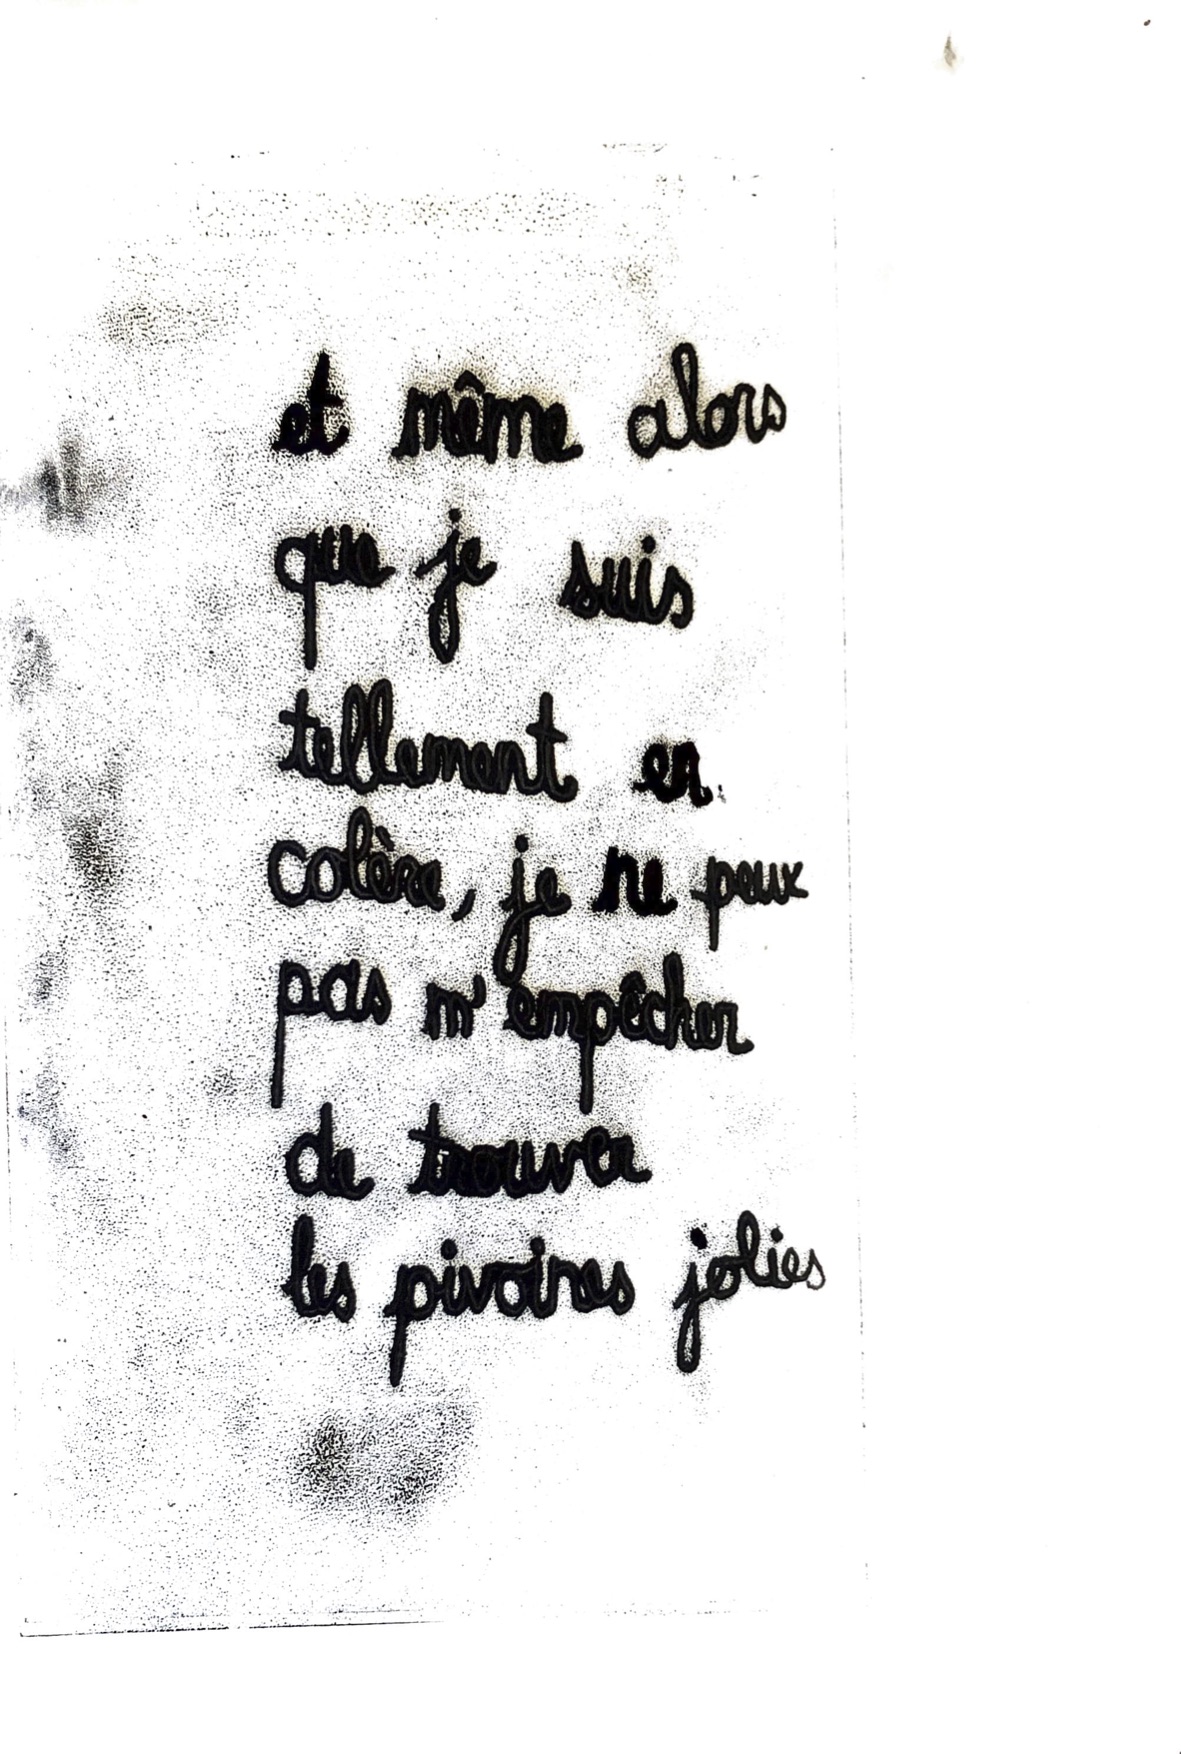 et même alors
que je suis
tellement en
colère, je ne peux
pas m'empêcher
de trouver
les pivoines jolies